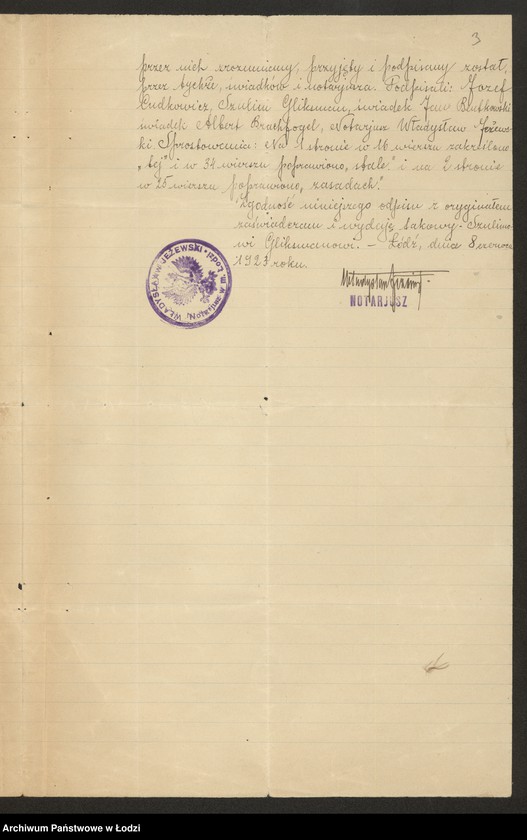 3
przez nich zrozumiany, przyjęty i podpisany został,
przez tychże, świadków i notaryusza. Podpisali: Józef
Cudkowicz, Szulim Gliksman, świadek Jan Rutkowski
świadek Albert Brachfogel, Notarjusz Władysław Jeżew-
ski Sprostowania: Na 1 stronie w 16 wierszu zakreślono
"tej" i w 34 wierszu poprawiono "stale" i na 2 stronie
w 25 wierszu poprawiono "zasadach".
Zgodność niniejszego odpisu z oryginałem
zaświadczam i wydaję takowy Szulimo-
wi Gliksmanowi. – Łódź, dnia 8 czerwca
1923 roku.
WŁADYSŁAW JEŻEWSKI
Notarjusz w m. Łodzi
NOTARJUSZ
Archiwum Państwowe w Łodzi